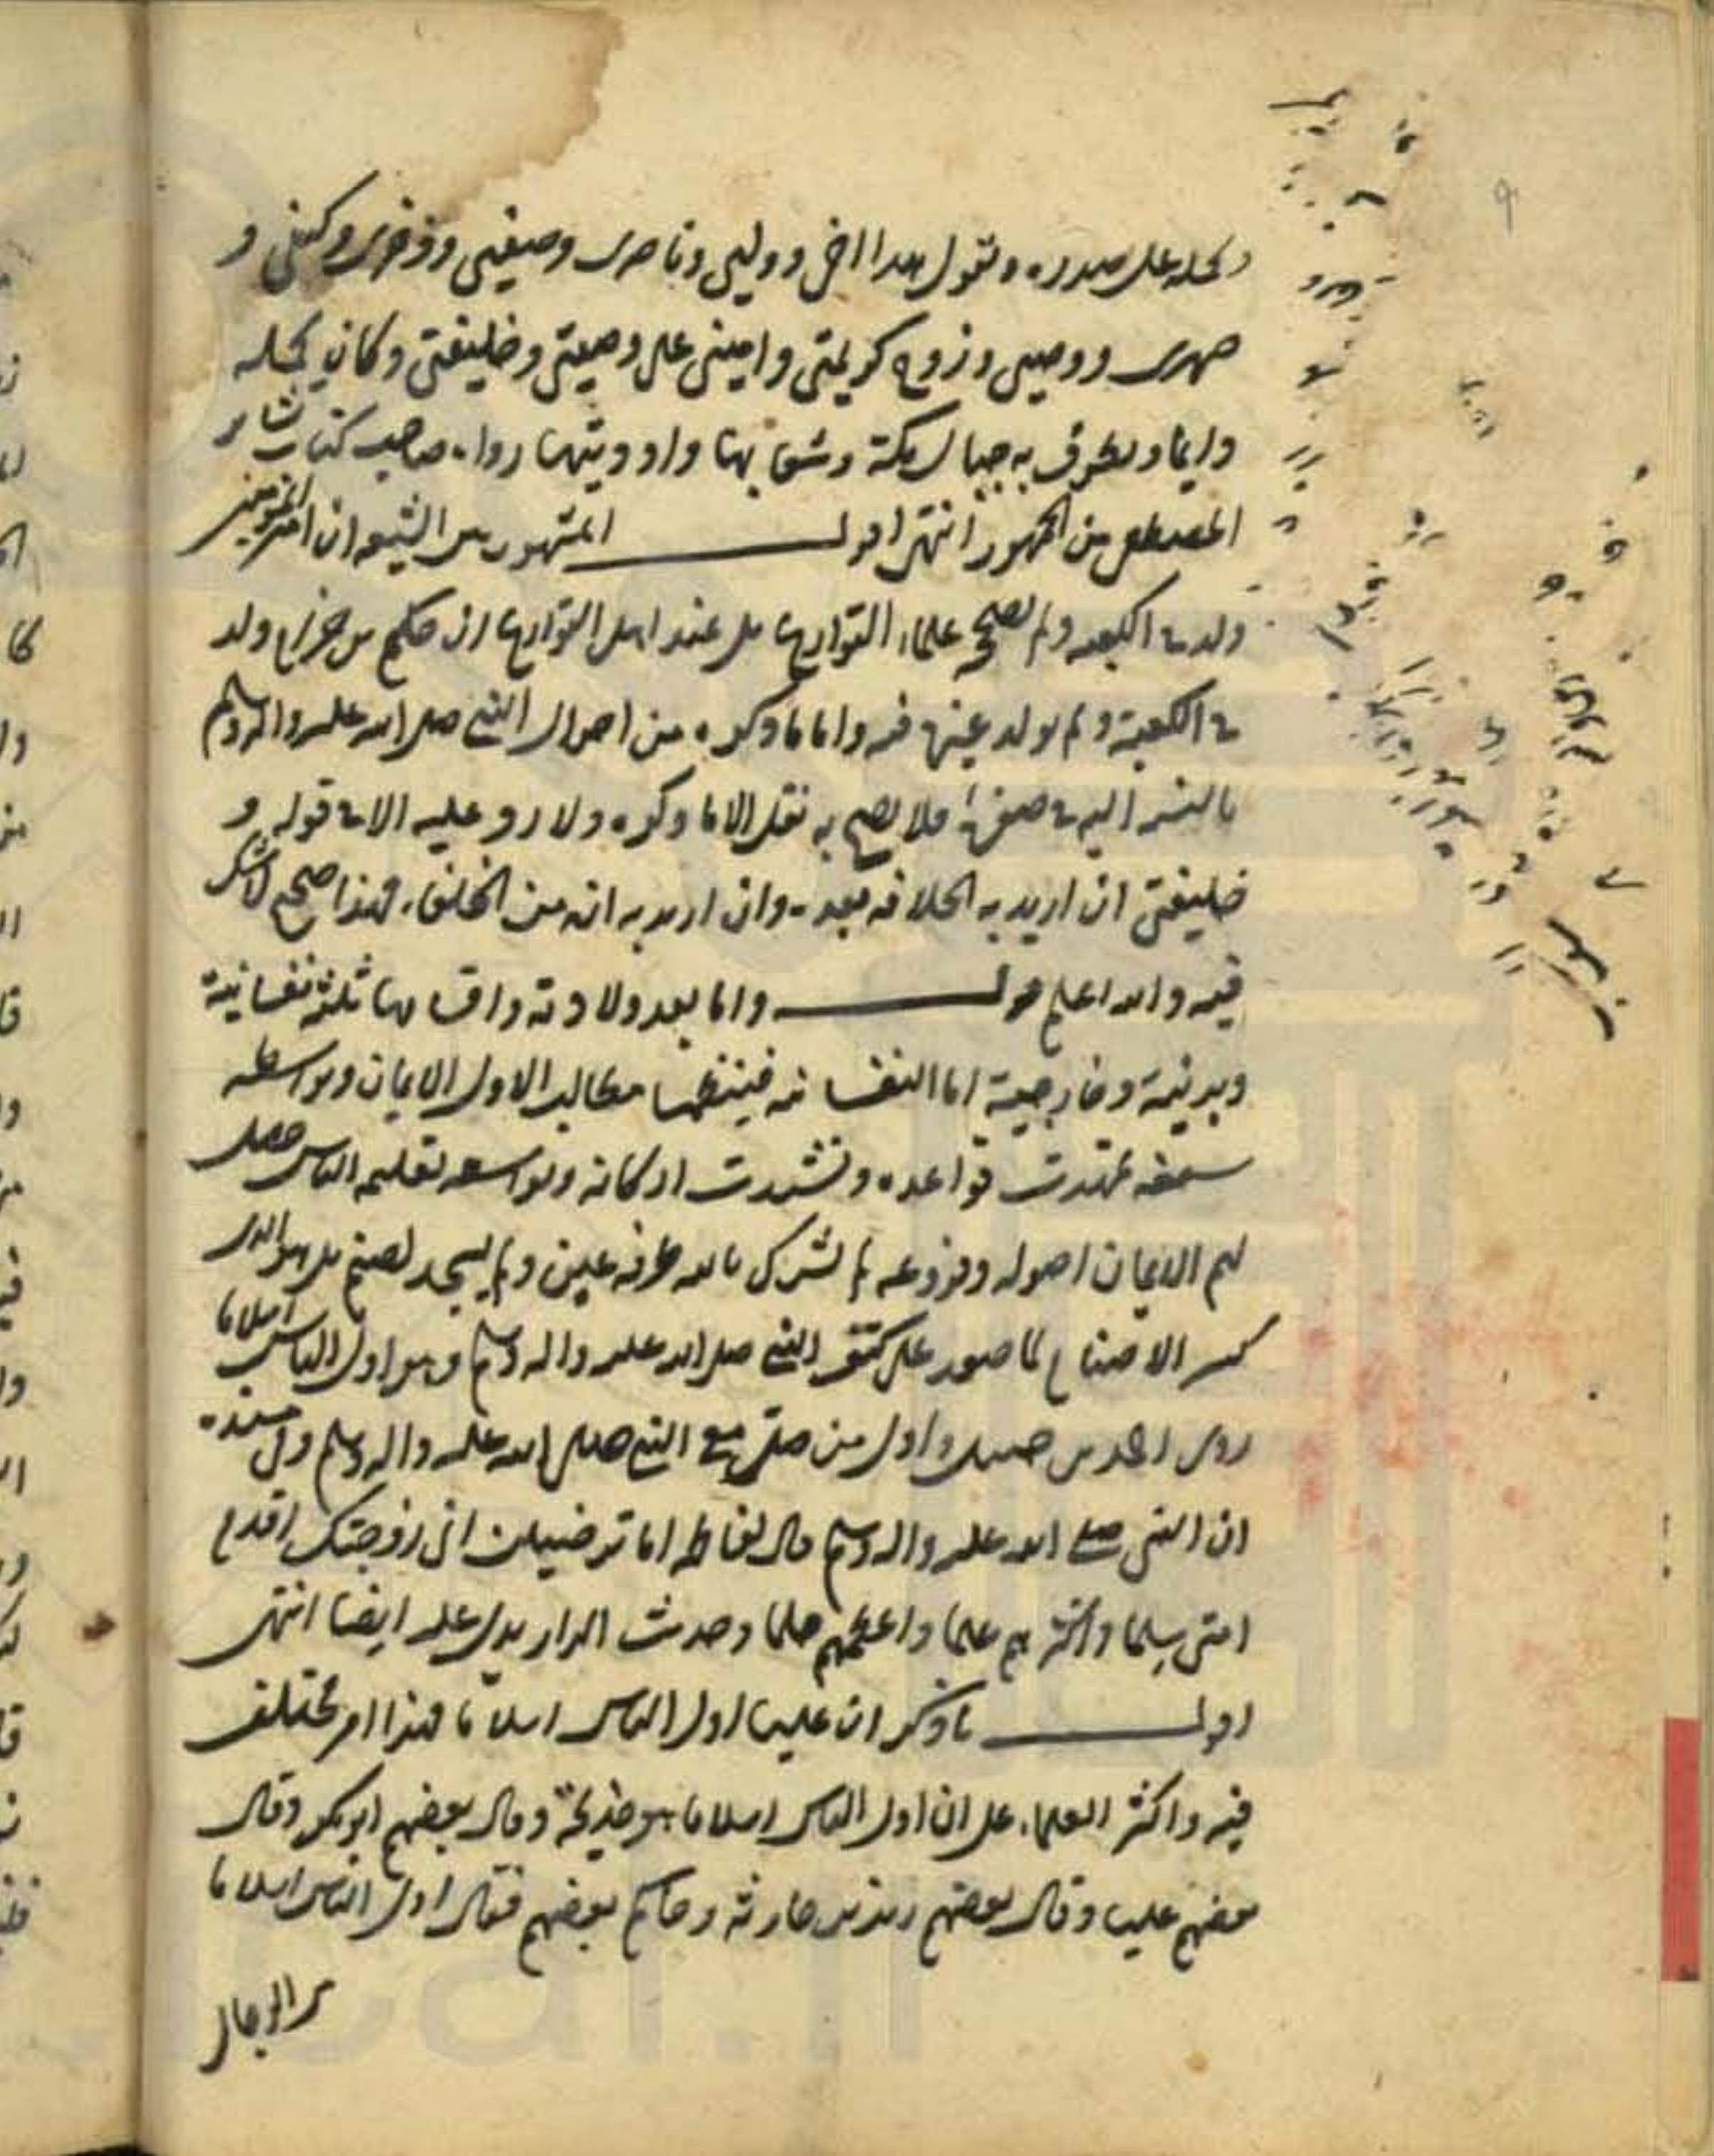 ويحمله على صدره ويقول هذا اخى ووليى وناصرى وصفيى وذخرى وكهفى و
صهرى ووصيى وزوج كريمتى وامينى على وصيتى وخليفتى وكان يحمله
دايما ويطوف به جبال مكة وشعابها واوديتها رواه صاحب كتاب بشاير
المصطفى من الجمهور انتهى اقول المشهور بين الشيعة ان امير المؤمنين
ولد فى الكعبه ولم يصححه علماء التواريخ بل عند اهل التواريخ ان حكيم بن حزام ولد
فى الكعبة ولم يولد غيره فيه واما ما ذكره من احوال النبى صلى الله عليه واله وسلم
بالنسبة اليه فى صغره فلا يصح به نقل الا ما ذكره ولا رد عليه الا فى قوله و
خليفتى ان اريد به الخلافه بعده وان اريد به انه من الخلفاء فهذا صحيح لا شك
فيه والله اعلم قوله واما بعد ولادته واقسامها ثلثة نفسانية
وبدنية وخارجية اما النفسانيه فينظمها مطالب الاول الايمان وبواسطه
سيفه تمهدت قواعده وتشيدت اركانه وبواسطه تعليمه الناس حصل
لهم الايمان اصوله وفروعه لم يشرك بالله طرفه عين ولم يسجد لصنم بل هو الذى
كسر الاصنام لما صعد على كتف النبى صلى الله عليه واله وسلم وهو اول الناس اسلاما
روى احمد بن حنبل انه اول من صلى مع النبى صلى الله عليه واله وسلم وفى مسنده
ان النبى صلى الله عليه واله وسلم قال لفاطمه اما ترضين انى زوجتك اقدم
امتى سلما واكثرهم علما واعظمهم حلما وحديث الدار يدل عليه ايضا انتهى
اقول ما ذكر ان عليا اول الناس اسلاما فهذا امر مختلف
فيه واكثر العلماء على ان اول الناس اسلاما هو خديجة وقال بعضهم ابوبكر وقال
بعضهم عليا وقال بعضهم زيد بن حارثه وحاكم بعضهم فقال اول الناس اسلاما
من الرجال